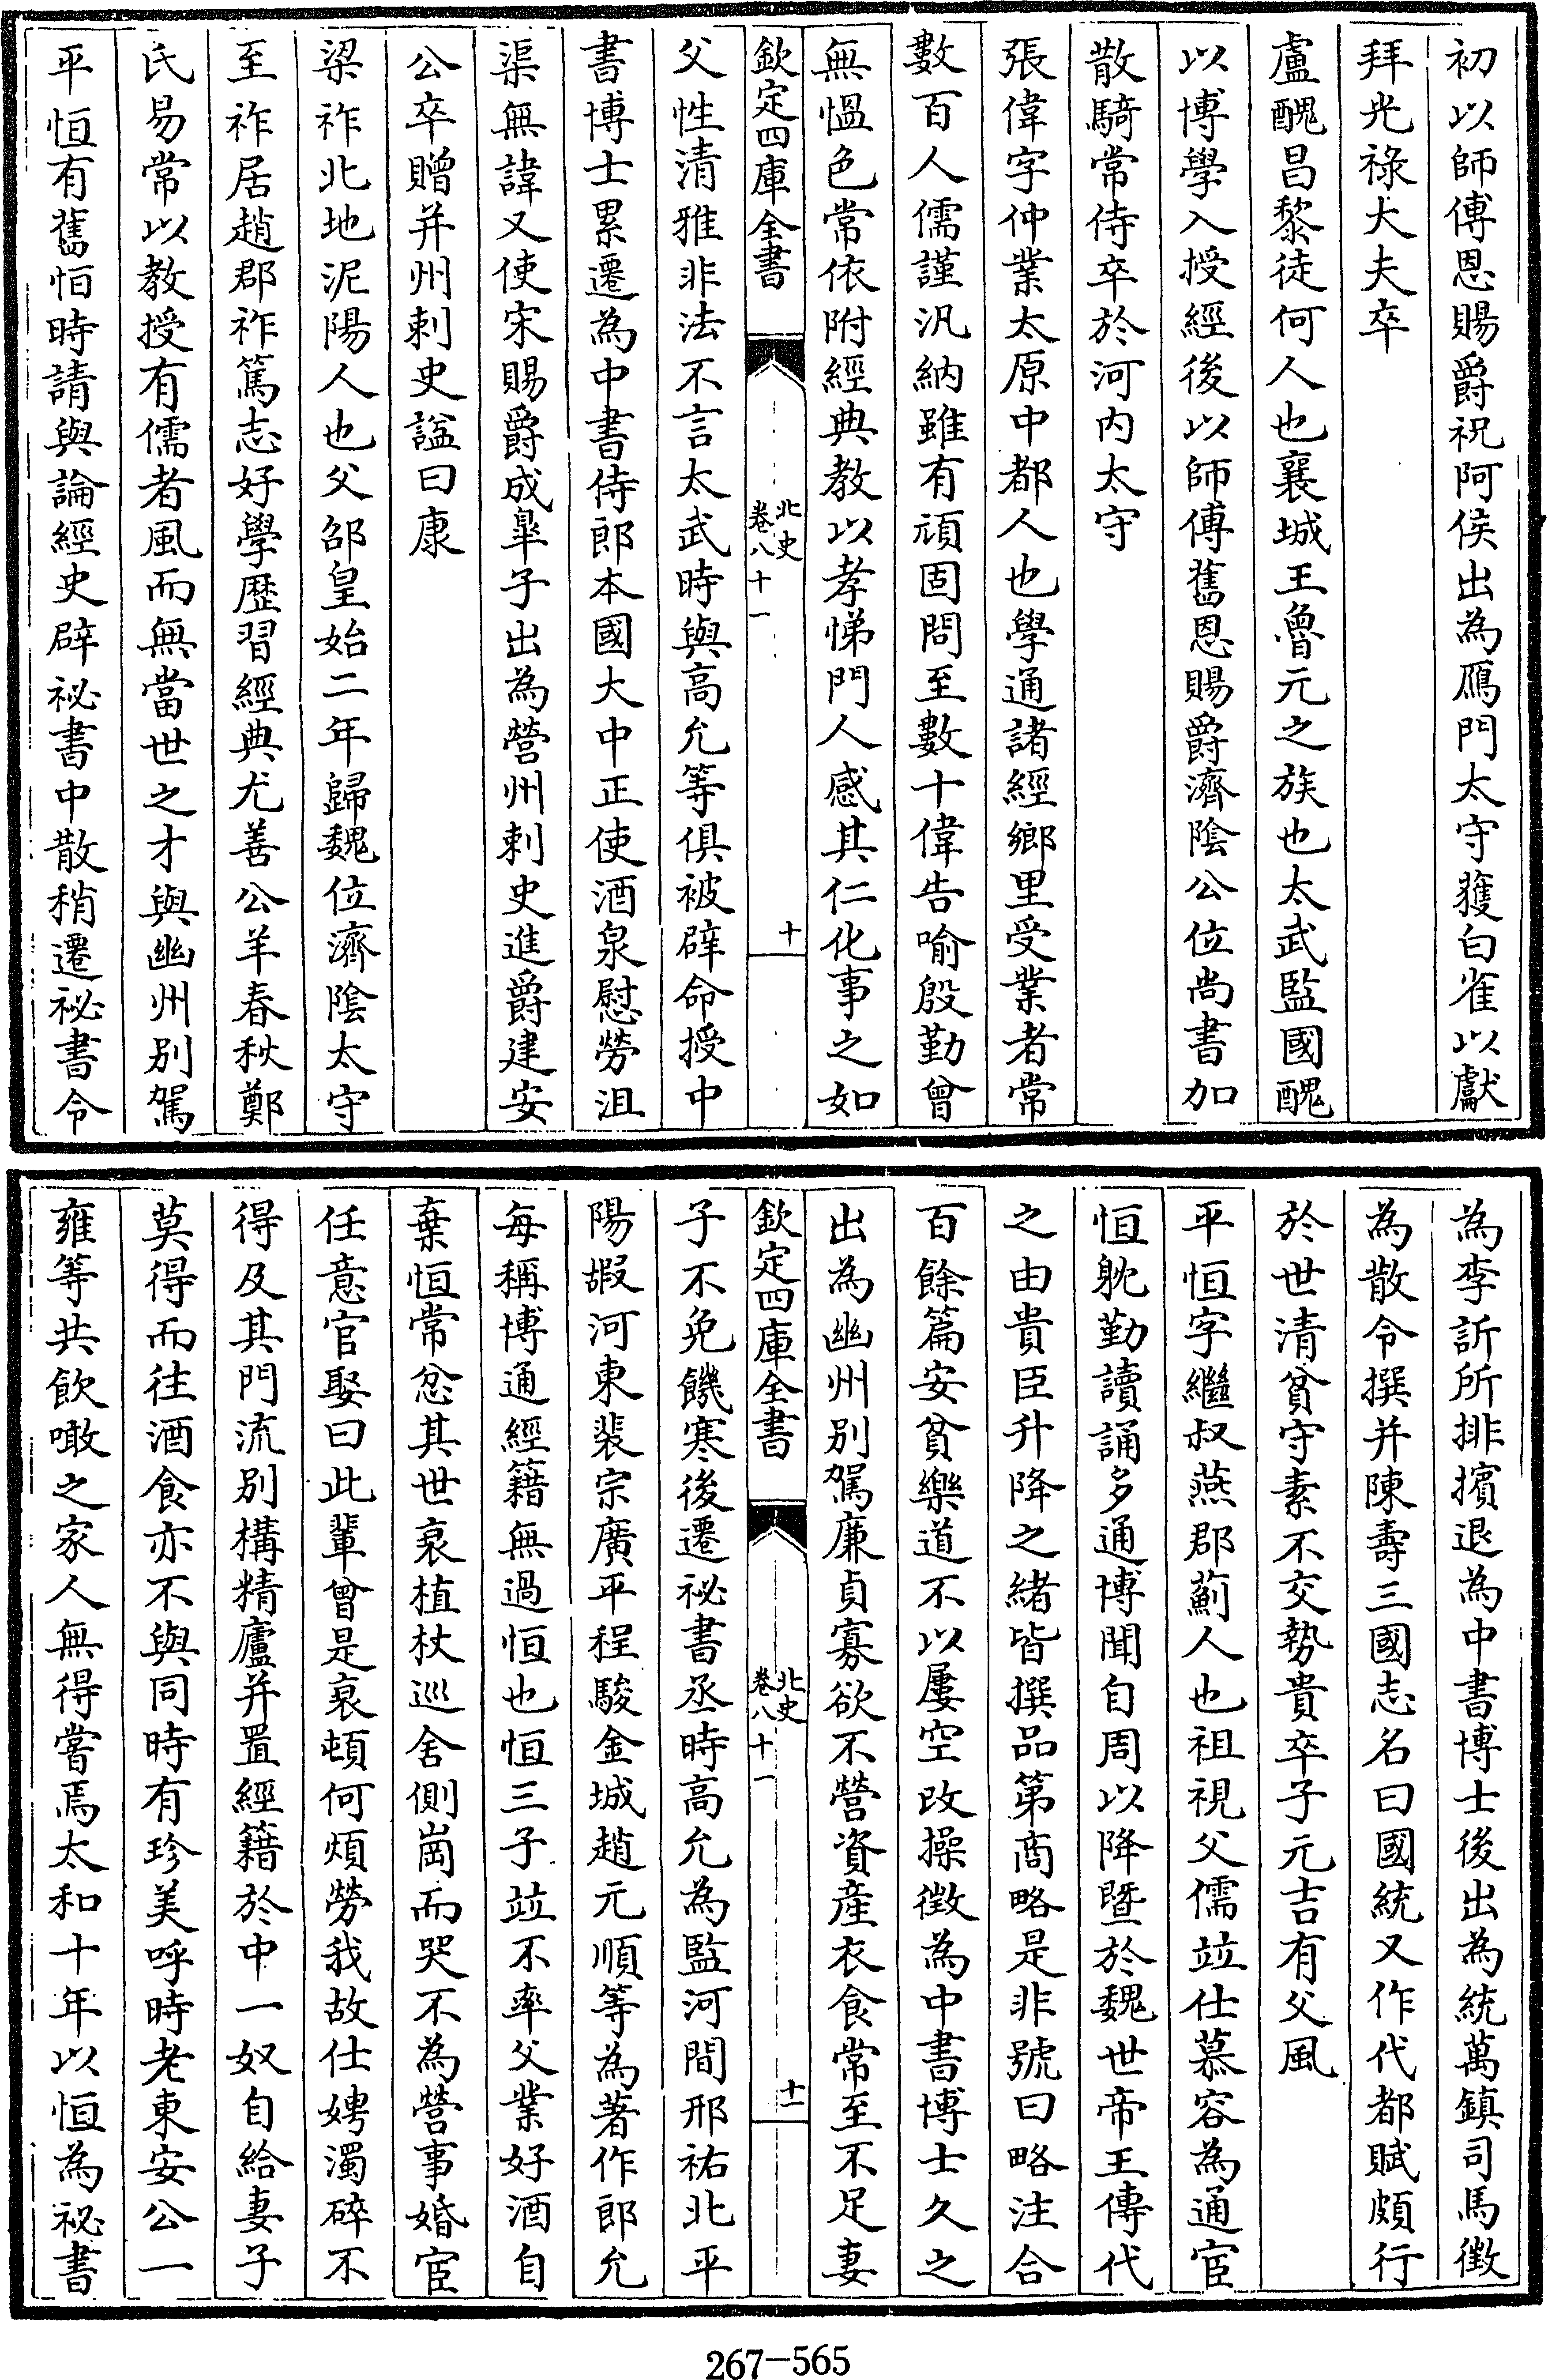 初以師傅恩賜爵祝阿侯出為鴈門太守獲白雀以獻
拜光祿大夫卒
盧醜昌黎徒何人也襄城王魯元之族也太武監國醜
以博學入授經後以師傅舊恩賜爵濟陰公位尚書加
散騎常侍卒於河內太守
張偉字仲業太原中都人也學通諸經鄉里受業者常
數百人儒謹汎納雖有頑固問至數十偉告喻殷勤曾
無慍色常依附經典教以孝悌門人感其仁化事之如
欽定四庫全書
北史
卷八十一
十
父性清雅非法不言太武時與高允等俱被辟命授中
書博士累遷為中書侍郎本國大中正使酒泉慰勞沮
渠無諱又使宋賜爵成臯子出為營州刺史進爵建安
公卒贈并州刺史諡曰康
梁祚北地泥陽人也父邵皇始二年歸魏位濟陰太守
至祚居趙郡祚篤志好學歷習經典尤善公羊春秋鄭
氏易常以教授有儒者風而無當世之才與幽州別駕
平恒有舊恒時請與論經史辟祕書中散稍遷祕書令
為李訢所排擯退為中書博士後出為統萬鎮司馬徵
為散令撰并陳壽三國志名曰國統又作代都賦頗行
於世清貧守素不交勢貴卒子元吉有父風
平恒字繼叔燕郡薊人也祖視父儒竝仕慕容為通宦
恒躭勤讀誦多通博聞自周以降暨於魏世帝王傳代
之由貴臣升降之緒皆撰品第商略是非號曰略注合
百餘篇安貧樂道不以屢空改操徵為中書博士久之
出為幽州別駕廉貞寡欲不營資產衣食常至不足妻
欽定四庫全書
北史
卷八十一
十一
子不免饑寒後遷祕書丞時高允為監河間邢祐北平
陽嘏河東裴宗廣平程駿金城趙元順等為著作郎允
每稱博通經籍無過恒也恒三子竝不率父業好酒自
棄恒常忿其世衰植杖巡舍側崗而哭不為營事婚宦
任意官娶曰此輩曾是衰頓何煩勞我故仕娉濁碎不
得及其門流別構精廬并置經籍於中一奴自給妻子
莫得而往酒食亦不與同時有珍美呼時老東安公一
雍等共飲噉之家人無得嘗焉太和十年以恒為祕書
267-565